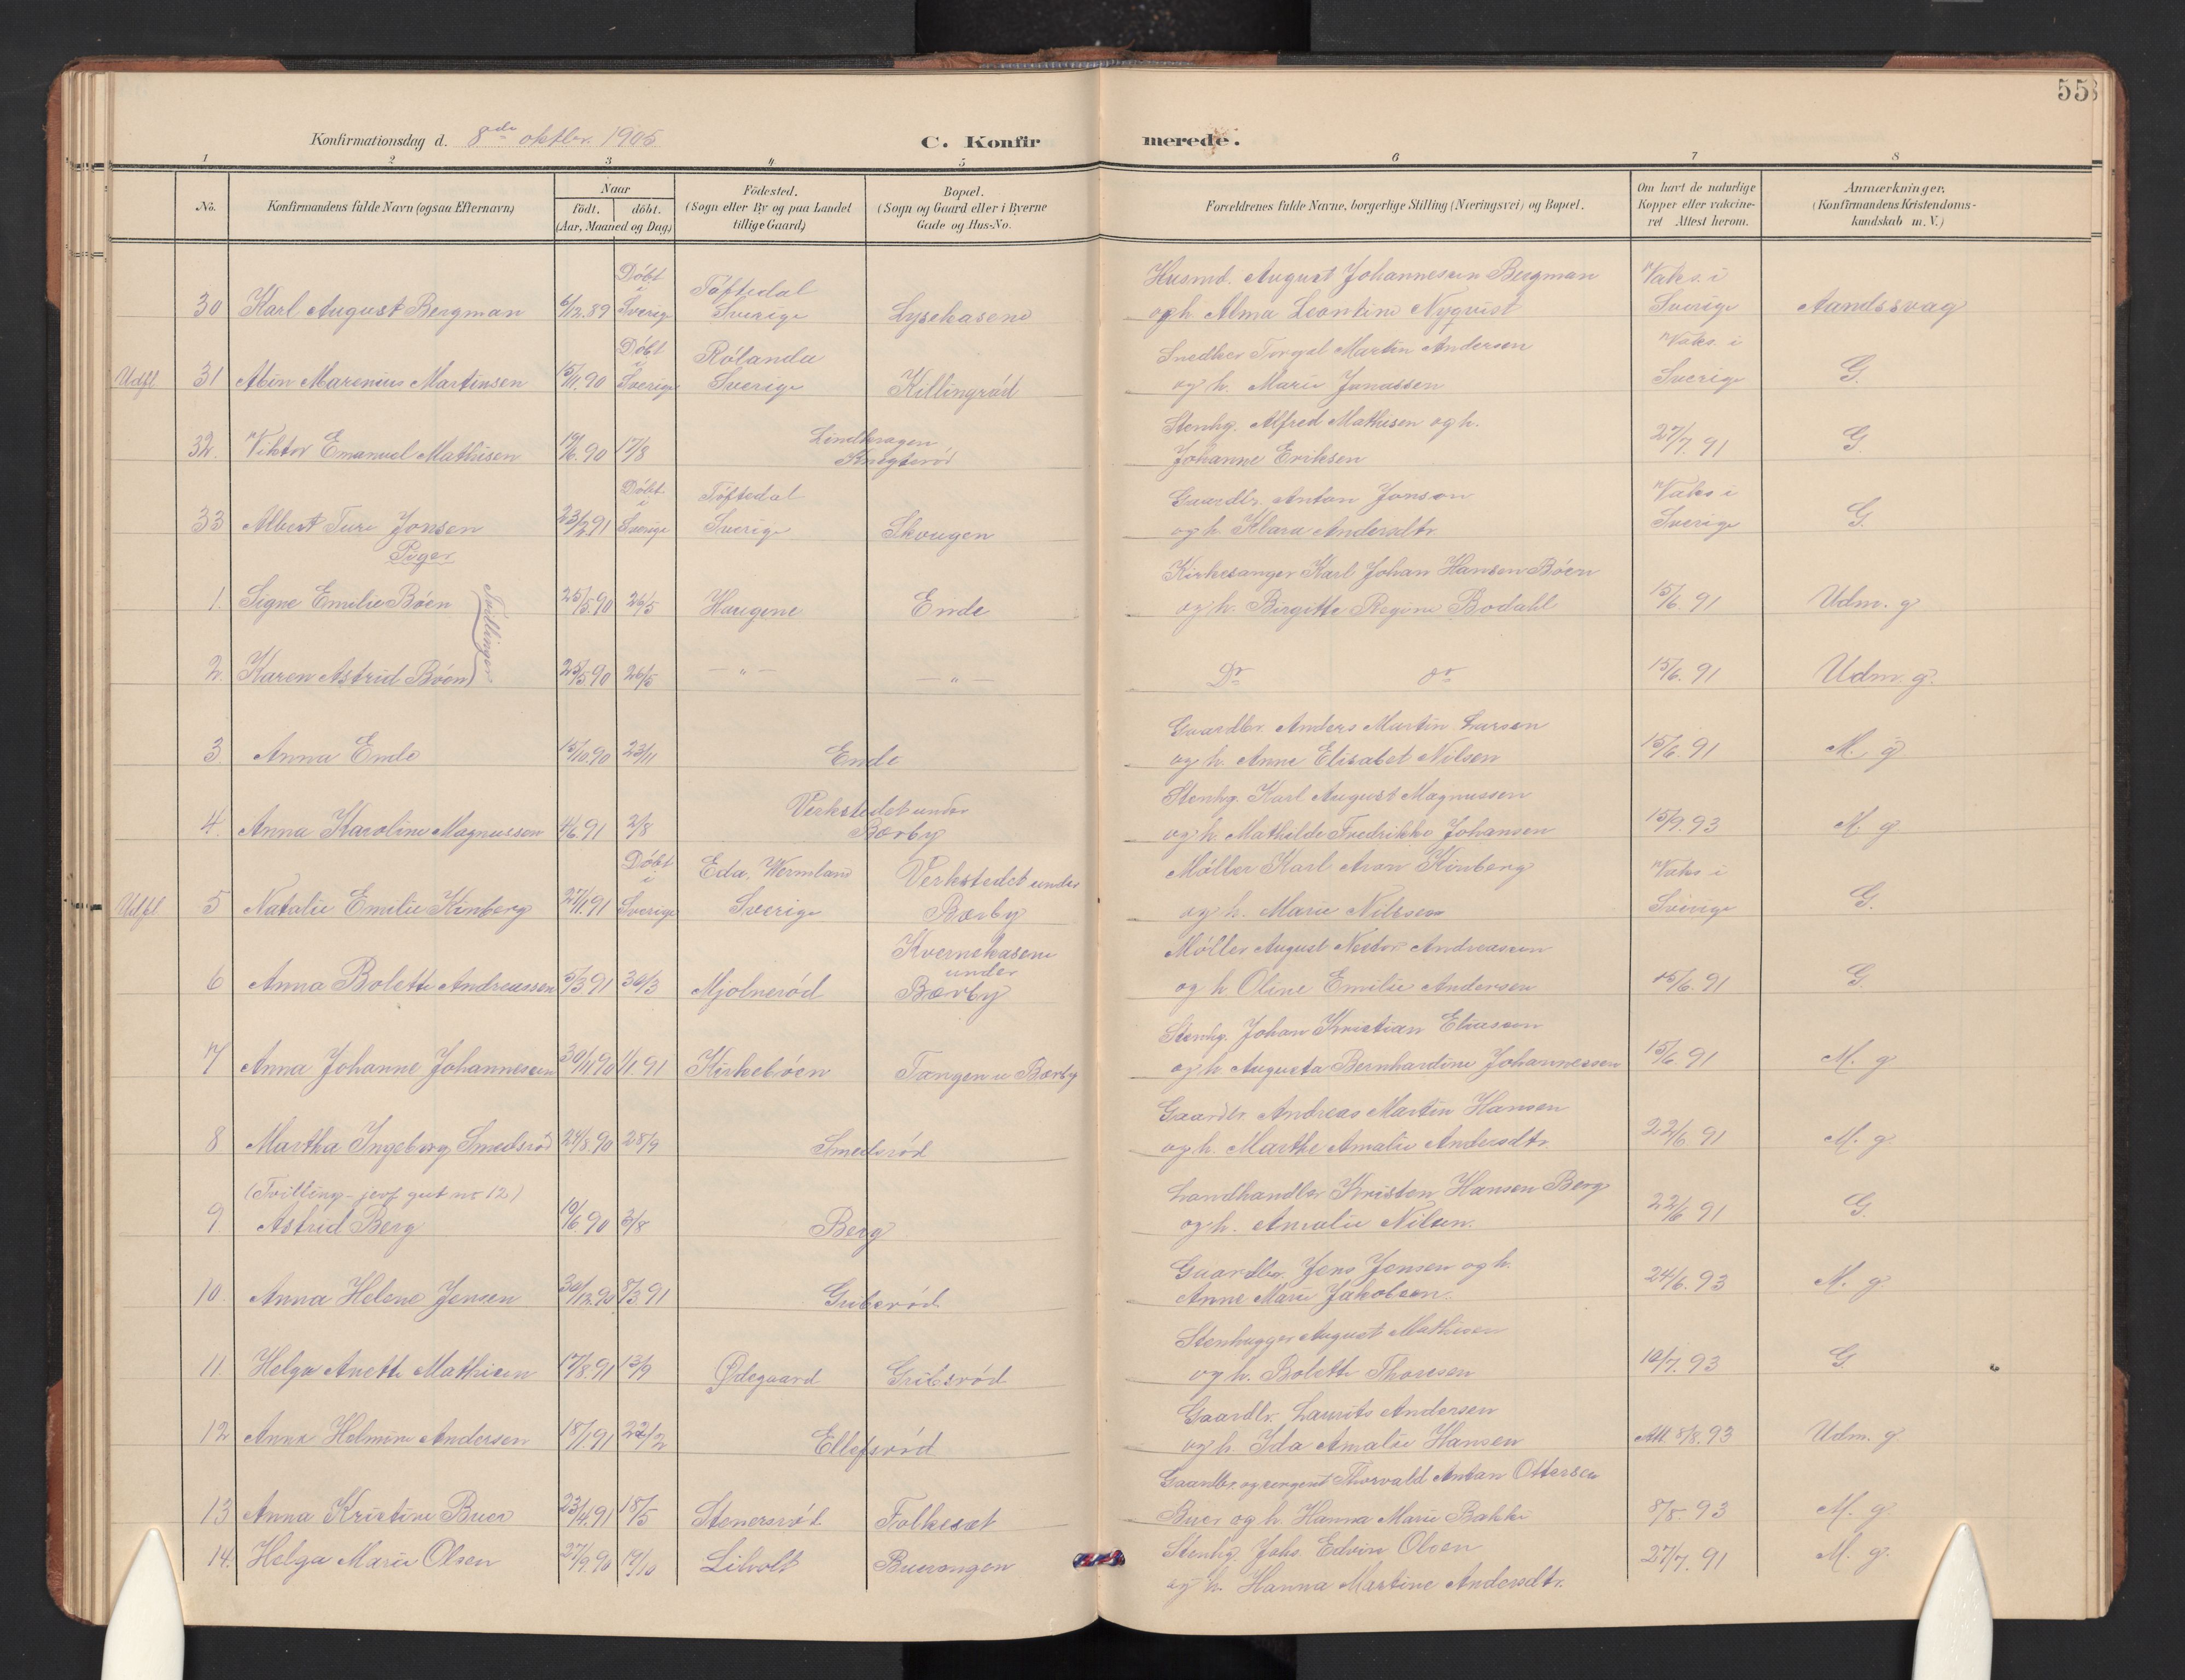 55
Konfirmationsdag d. 8de oktbr. 1905
C. Konfirmerede.
1 2 3 4 5 6 7 8
No. Konfirmandens fulde Navn (ogsaa Efternavn) Naar født. døbt. (Aar, Maaned og Dag) Födested. (Sogn eller By og paa Landet tillige Gaard) Bopæl. (Sogn og Gaard eller i Byerne Gade og Hus-No. Forældrenes fulde Navne, borgerlige Stilling (Næringsvei) og Bopæl. Om havt de naturlige Kopper eller vaccineret Attest herom. Anmærkninger. (Konfirmandens Kristendomskundskab m. V.)
Døbt i Töftedal Husmd. August Johannessen Bergman Vaks. i
30 Karl August Bergman 6/12.89 Sverig Sverige Lysekasene og h. Alma Leontine Nyquist Sverige Aandssvag
Døbt i Rölanda Snedker Torgal Martin Andersen Vaks. i
Udfl 31 Abin Marenius Martinsen 15/11.90 Sverige Sverige Killingrød og h. Marie Janassen Sverige G.
Stenhg. Alfred Mathisen og h.
32. Viktor Emanuel Mathisen 19/6.90 17/8 Lindhragen Knegterød Johanne Eriksen 27/7.91 G.
Døbt i Töftedal Gaardbr. Anton Jonson Vaks i
33 Albert Ture Jonsen 23/2.91 Sverige Sverige Skougen og h. Klara Andersdtr Sverige G.
Piger
Kirkesanger Karl Johan Hansen Böen
1. Signe Emilie Böen 25/5.90 26/5 Haugene Ende og h. Birgitte Regine Bodahl 15/6.91 Udm. g
Tvillinger
2. Karen Astrid Böen 25/5.90 26/5 — " — — " — Do do 15/6.91 Udm. g.
Gaardbr. Anders Martin Larsen
3 Anna Ende 15/10.90 23/11 Ende og h. Anne Elisabet Nilsen 15/6.91 M. g
Verkstedet under Stenhg. Karl August Magnussen
4. Anna Karoline Magnussen 4/6.91 2/8 Bærby og h. Mathilde Fredrikke Johansen 15/9.93 M. g
Døbt i Eda, Wermland Verkstedet under Möller Karl Aron Kinberg Vaks i
Udfl 5 Natalie Emilie Kinberg 27/1.91 Sverige Sverige Bærby og h. Marie Nilssen Sverige G.
Kvernekasene under Möller August Nestor Andreassen
6 Anna Bolette Andreassen 5/3.91 30/3 Mjolnerød Bærby og h Oline Emilie Andersen 15/6.91 G.
Stenhg. Johan Kristian Eliassen
7 Anna Johanne Johannessen 30/11.90 1/1.91 Kirkebøen Tangen u Bærby og h Augusta Bernhardine Johannessen 15/6.91 M. g
Gaardbr. Andreas Martin Hansen
8 Martha Ingeborg Smedsrød 24/8.90 28/9 Smedsrød og h. Marthe Amalie Andersdtr. 22/6.91 M. g.
(Tvilling - jevf gut no 12) Landhandler Kristen Hansen Berg
9. Astrid Berg 10/6.90 3/8 Berg og h. Amalie Nilsen. 22/6 91 G.
Gaardbr. Jens Jensen og h.
10. Anna Helene Jensen 30/12.90 8/3.91 Guberød Anne Marie Jakobsen. 24/6.93 M. g
Stenhugger August Mathisen
11. Helga Anette Mathisen 17/8.91 13/9 Ødegaard Gribsrød og h. Bolette Thoresen 10/7.93 G.
Gaardbr. Laurits Andersen
12 Anna Helmine Andersen 18/1.91 22/2 Ellefsrød og h. Ida Amalie Hansen Att. 8/8.93 Udm. g
Gaardbr. og sergent Thorvald Anton Ottersen
13 Anna Kristine Buer 23/4.91 18/5 Stenersrød Folkesæt Buer og h. Hanna Marie Bakke 8/8.93 M. g.
Stenhg. Johs. Edvin Olsen
14. Helga Marie Olsen 27/9.90 19/10 Liholt Buerengen og h. Hanna Martine Andersdtr. 27/7.91 M. g.